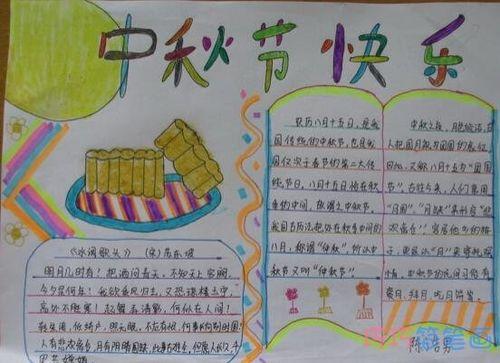 中秋节快乐
农历八月十五日,是我
国传统的中秋节,也是我
国仅次于春节的第二大传
统节日,八月十五恰在秋
季的中间,故谓之中秋节,
我国古历法把处在秋季中间的
八月,称谓“仲秋”,所以中
秋节又叫“仲秋节”。
中秋之夜,月色皎洁,古
人把圆月视为团圆的象征,
因此,又称八月十五为“团圆
节”。古往今来,人们常用
“月圆”、“月缺”来形容“悲
欢离合”,
拜月、吃月饼等。
《水调歌头》 (宋)苏东坡
明月几时有?把酒问青天。不知天上宫阙,
今夕是何年?我欲乘风归去,又恐琼楼玉宇,
高处不胜寒!起舞弄清影,何似在人间?
转朱阁,低绮户,照无眠。不应有恨,何事长向别时圆?
人有悲欢离合,月有阴晴圆缺,此事古难全。但愿人长久,千
里共婵娟